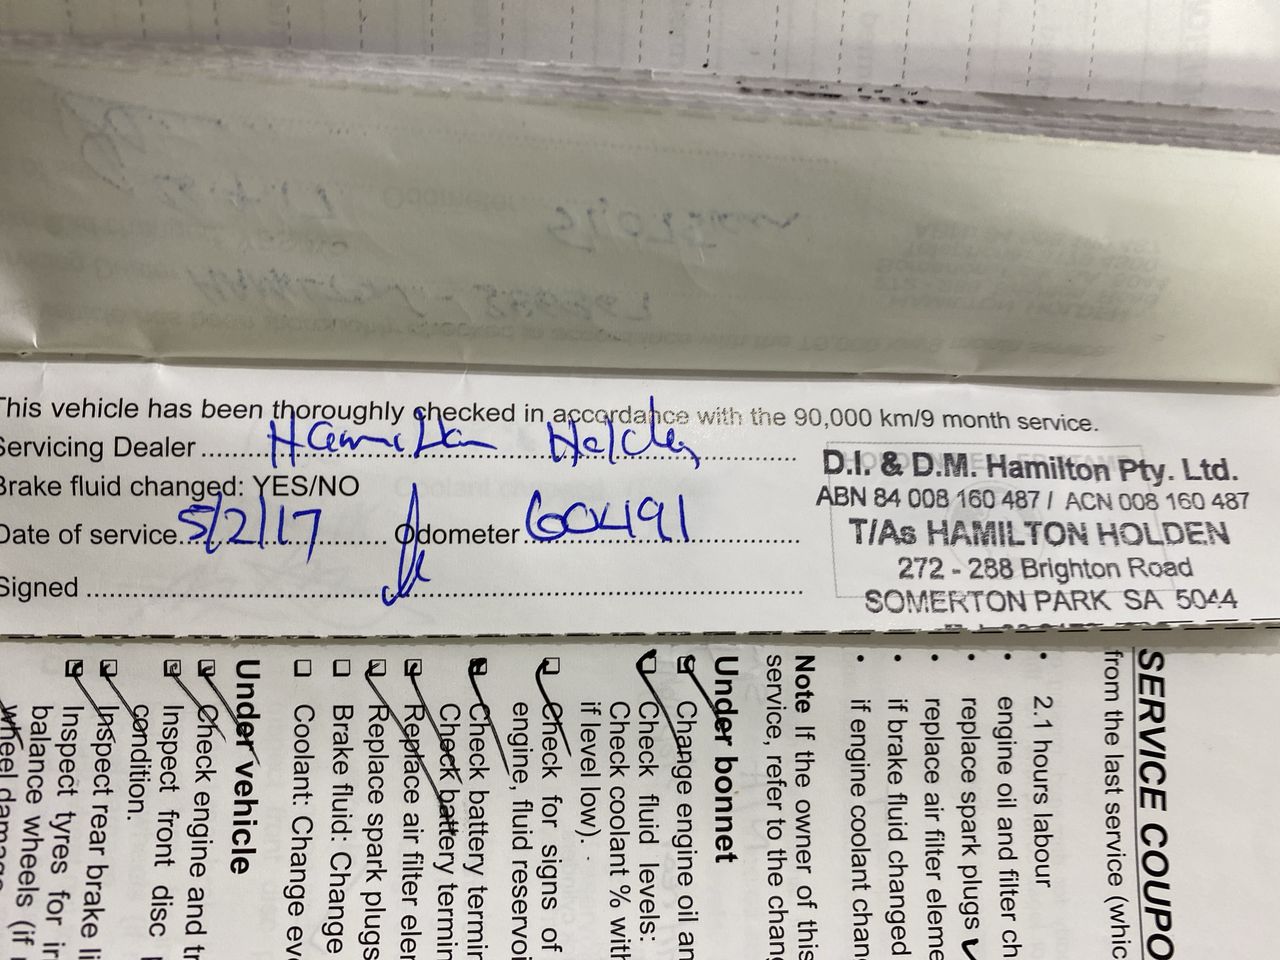 This vehicle has been thoroughly checked in accordance with the 90,000 km/9 month service.
Servicing Dealer Hamilton Holden
Brake fluid changed: YES/NO
Date of service 5/2/17 Odometer 60491
Signed
D.I. & D.M. Hamilton Pty. Ltd.
ABN 84 008 160 487 / ACN 008 160 487
T/As HAMILTON HOLDEN
272 - 288 Brighton Road
SOMERTON PARK SA 5044
SERVICE COUPO
from the last service (whic
• 2.1 hours labour
• engine oil and filter ch
• replace spark plugs
• replace air filter eleme
• if brake fluid changed
• if engine coolant chan
Note If the owner of this
service, refer to the chang
Under bonnet
Change engine oil an
Check fluid levels:
Check coolant % with
if level low).
Check for signs of
engine, fluid reservoi
Check battery termin
Check battery termin
Replace air filter elem
Replace spark plugs
Brake fluid: Change
Coolant: Change eve
Under vehicle
Check engine and tr
Inspect front disc
condition.
Inspect rear brake li
Inspect tyres for irr
balance wheels (if
wheel damage